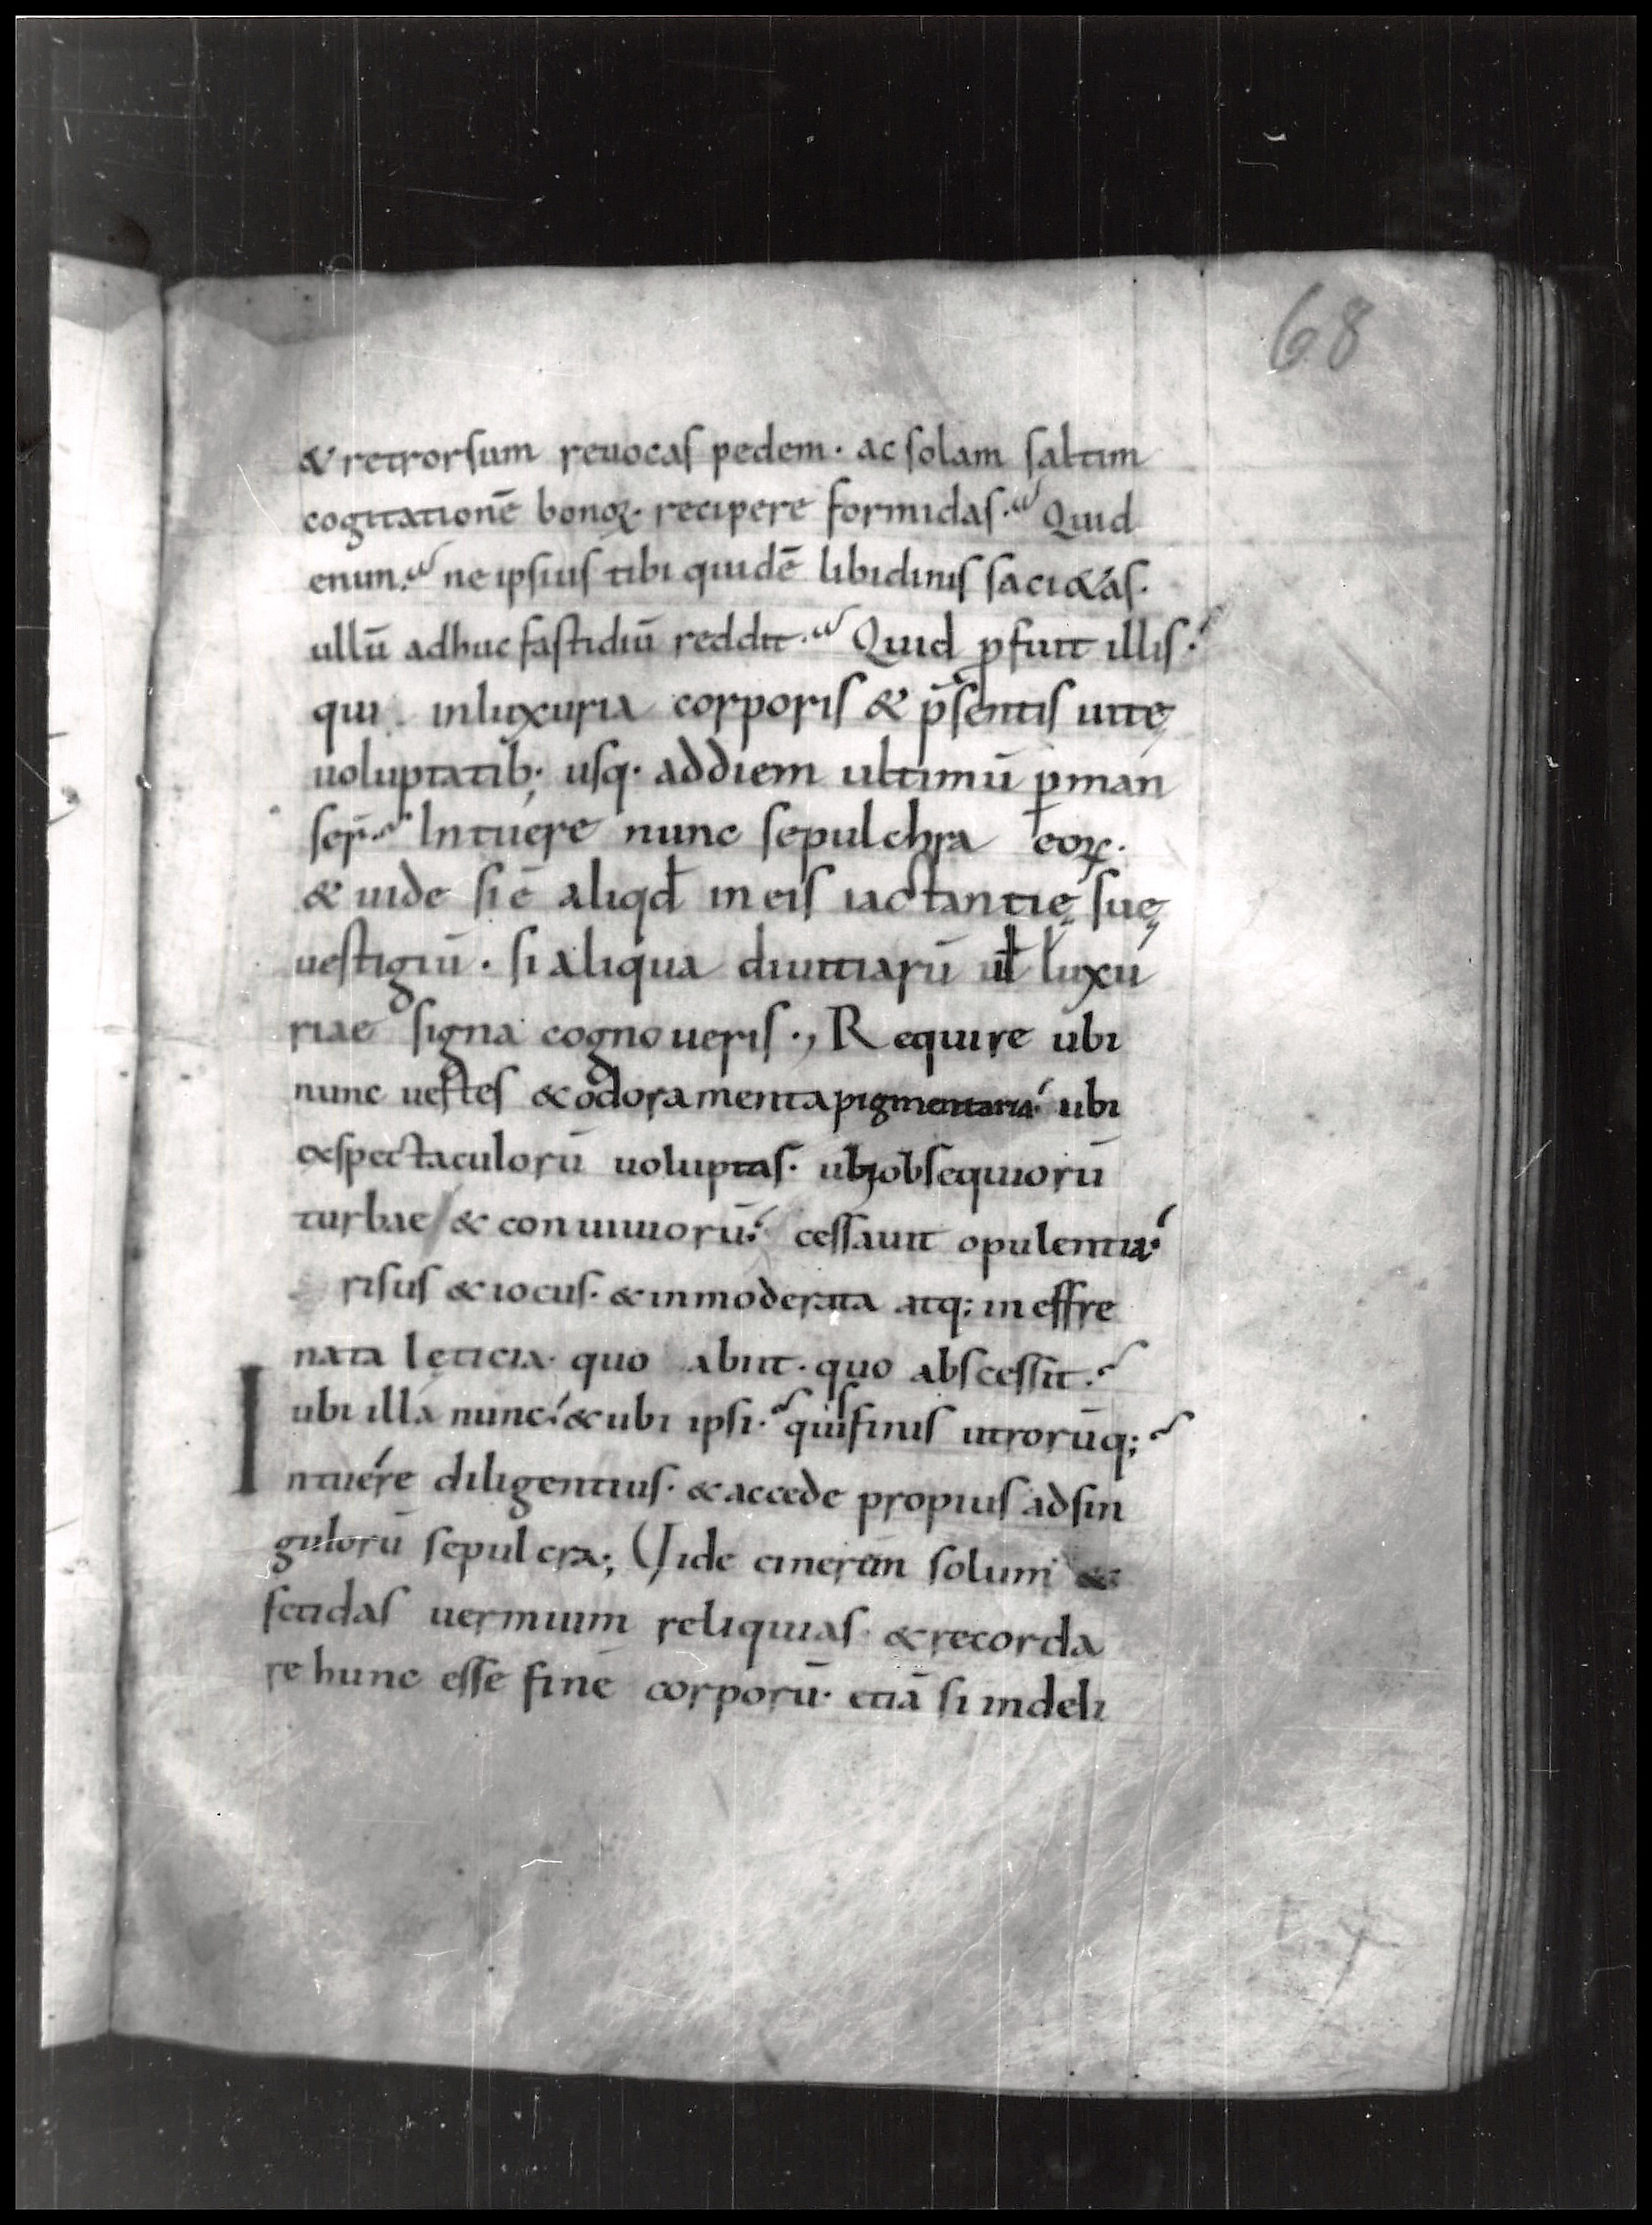 68
& retrorsum reuocas pedem· ac solam saltim
cogitationē bonoꝝ· recipere formidas· Quid
enim· ne ipsius tibi quidē libidinis saci&as·
ullū adhuc fastidiū reddit· Quid ꝓfuit illis·
qui inluxuria corporis & p̄sentis uitę
uoluptatib; usq· addiem ultimū ꝑman
ser̄· Intuere nunc sepulchra eoꝝ·
& uide si ē aliqđ in eis iactantię suę
uestigiū· si aliqua diuitiarū uł luxu
riae signa cognoueris·, Require ubi
nunc uestes & odoramenta pigmentaria· ubi
& spectaculorū uoluptas· ubi obsequiorū
turbae / & conuiuiorū· cessauit opulentia·
risus & iocus· & inmoderata atq; ineffre
nata lęticia· quo abiit· quo abscessit·
ubi illa nunc· & ubi ipsi· quis finis utrorūq;
Intuére diligentius· & accede propius adsin
gulorū sepulcra·; Uide cinerem solum &
fetidas uermium reliquias· & recorda
re hunc esse finē corporū· etiā si indeli